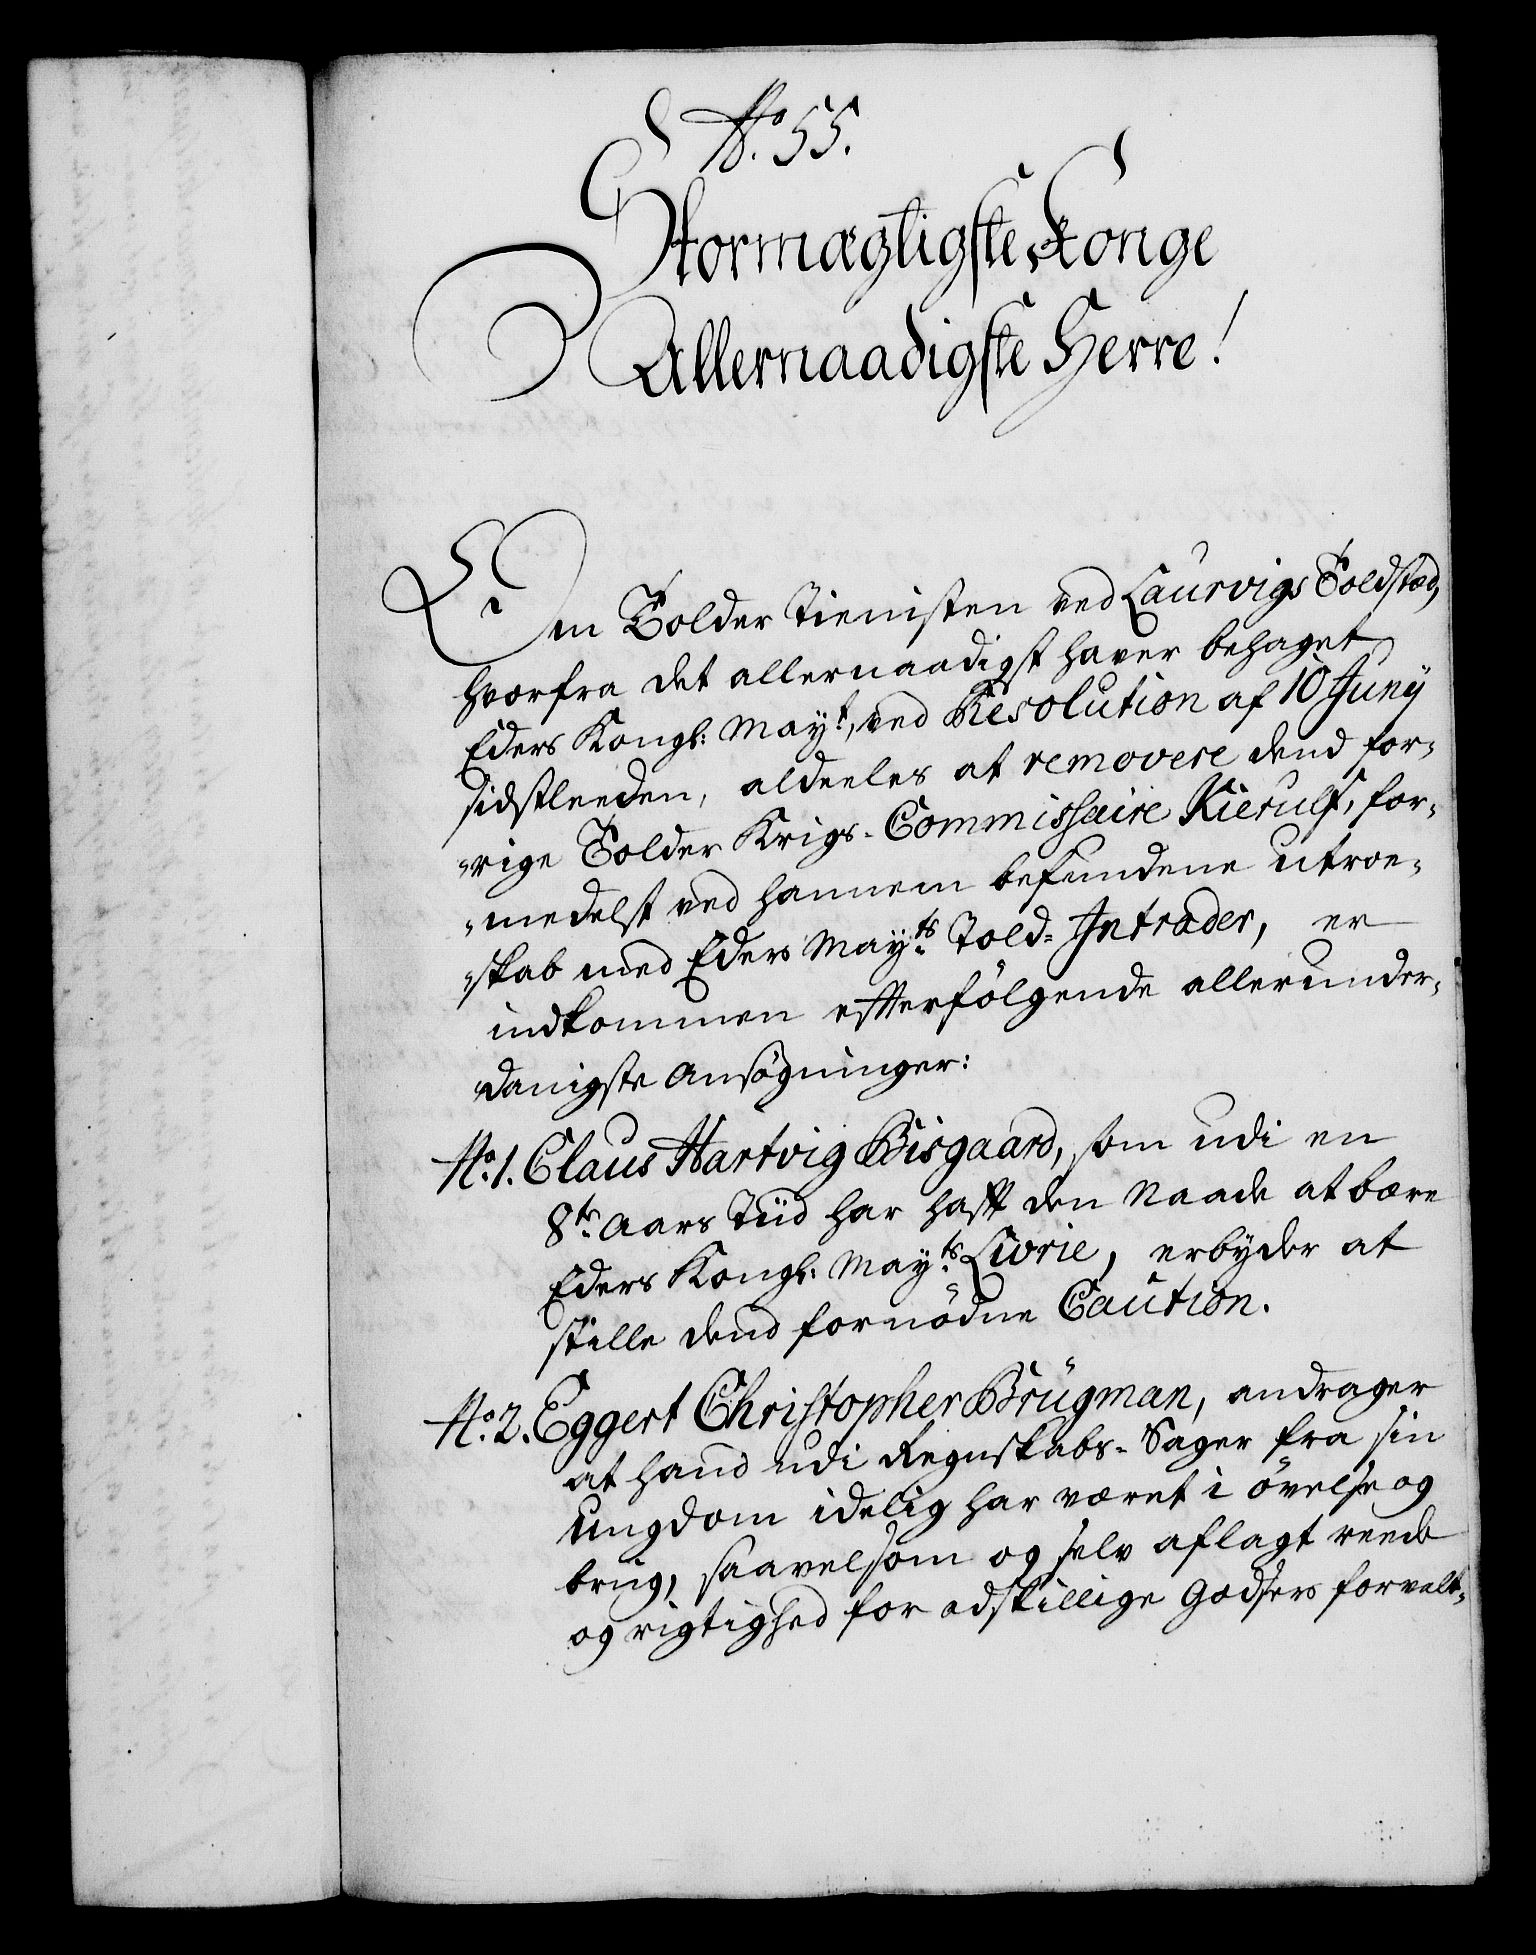 No. 55.
Stormægtigste Konge
Allernaadigste Herre!
Om Tolder Tienisten ved Laurvigs Toldsted,
hvorfra det allernaadigst haver behaget
Eders Kongl: Mayt., ved Resolution af 10 Juny
sidstleeden, aldeeles at removere dend for-
-rige Tolder Krigs-Commissaire Kierulf, for-
-medelst ved hannem befundene utroe-
-skab med Eders Mayts. Told-Intrader, er
indkommen efterfölgende allerunder-
danigste Ansögninger:
No. 1. Claus Hartvig Bisgaard, som udi en
8te. Aars Tiid har hafft den Naade at bære
Eders Kongl: Mayts. Livrie, erbyder at
stille dend fornödne Caution.
No. 2. Eggert Christopher Brügman, andrager
at hand udi Regnskabs-Sager fra sin
Ungdom idelig har været i övelse og
brug, saavelsom og selv aflagt reede
og rigtighed for adskillige Godsers forvalt-